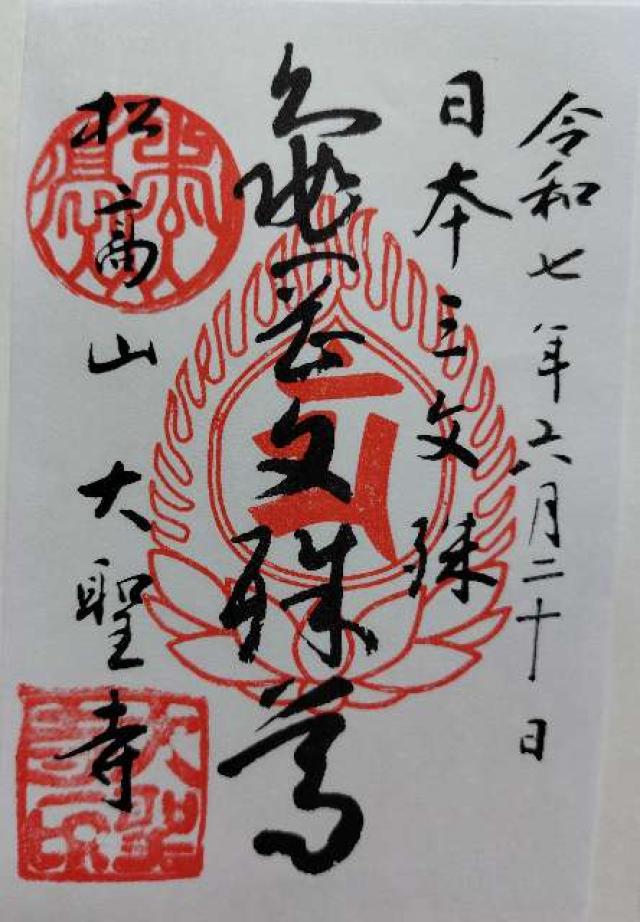 令和七年六月二十日
日本三文殊
亀岡文殊尊
松高山
大聖寺
大聖寺印